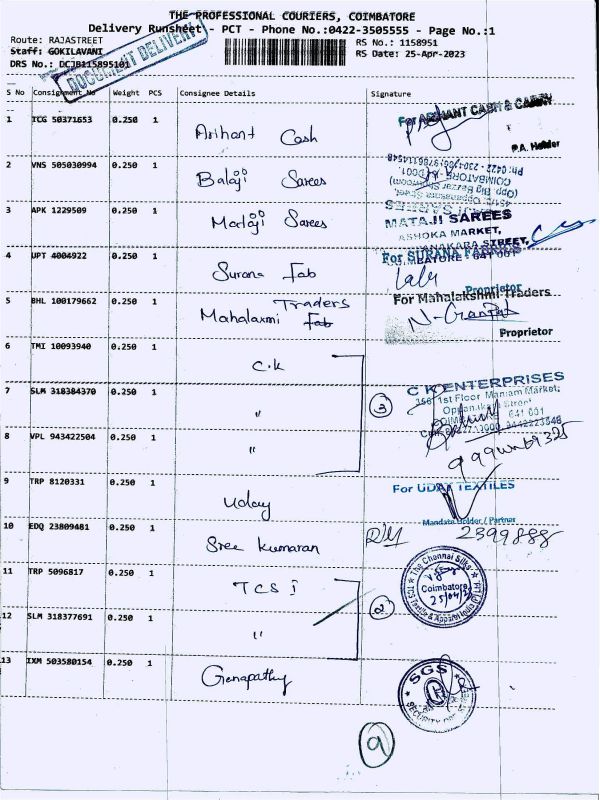 THE PROFESSIONAL COURIERS, COIMBATORE
Delivery Runsheet - PCT - Phone No.:0422-3505555 - Page No.:1
Route: RAJASTREET
RS No.: 1158951
Staff: GOKILAVANI
RS Date: 25-Apr-2023
DRS No.: DCJB115895101
DOCUMENT DELIVERY
S No Consignment No Weight PCS Consignee Details Signature
1 TCG 50371653 0.250 1 Arihant Cash
For ARIHANT CASH & CARRY
P.A. Holder
2 VNS 505030994 0.250 1 Balaji Sarees
(Opp. Big Bazzar Showroom)
3 APK 1229509 0.250 1 Mataji Sarees
MATAJI SAREES
ASHOKA MARKET,
4 UPT 4004922 0.250 1 Surana Fab
For SURANA FABRICS
COIMBATORE - 641 001
Lalu
Proprietor
5 BHL 100179662 0.250 1 Mahalaxmi Traders
For Mahalakshmi Traders
Proprietor
6 TMI 10093940 0.250 1 C.K
7 SLM 318384370 0.250 1 "
3
C K ENTERPRISES
1st Floor Maniam Market,
Oppanakara Street
COIMBATORE 641 001
8 VPL 943422504 0.250 1 "
9 TRP 8120331 0.250 1 Uday
For UDAY TEXTILES
Mandate Holder / Partner
10 EDQ 23809481 0.250 1 Sree Kumaran
2399888
11 TRP 5096817 0.250 1 TCS I
2
The Chennai Silks
Coimbatore
25/04/23
12 SLM 318377691 0.250 1 "
13 IXM 503580154 0.250 1 Ganapathy
SGS
SECURITY
9